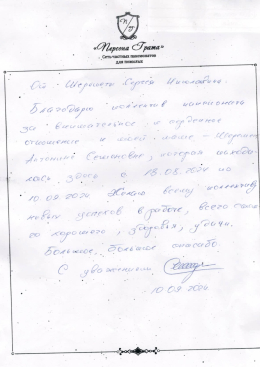 П Г
«Персона Гранж»
Сеть частных пансионатов
для пожилых
От Сергея Николаевича.
Благодарю коллектив пансионата
за внимательное и чуткое
отношение к моей маме –
Антонине Семеновне, которая находи-
лась здесь с 18.08.2024 по
10.09.2024 Желаю всему коллективу
новых успехов в работе, всего само-
го хорошего, здоровья, удачи.
Большое, большое спасибо.
С уважением
10.09.2024